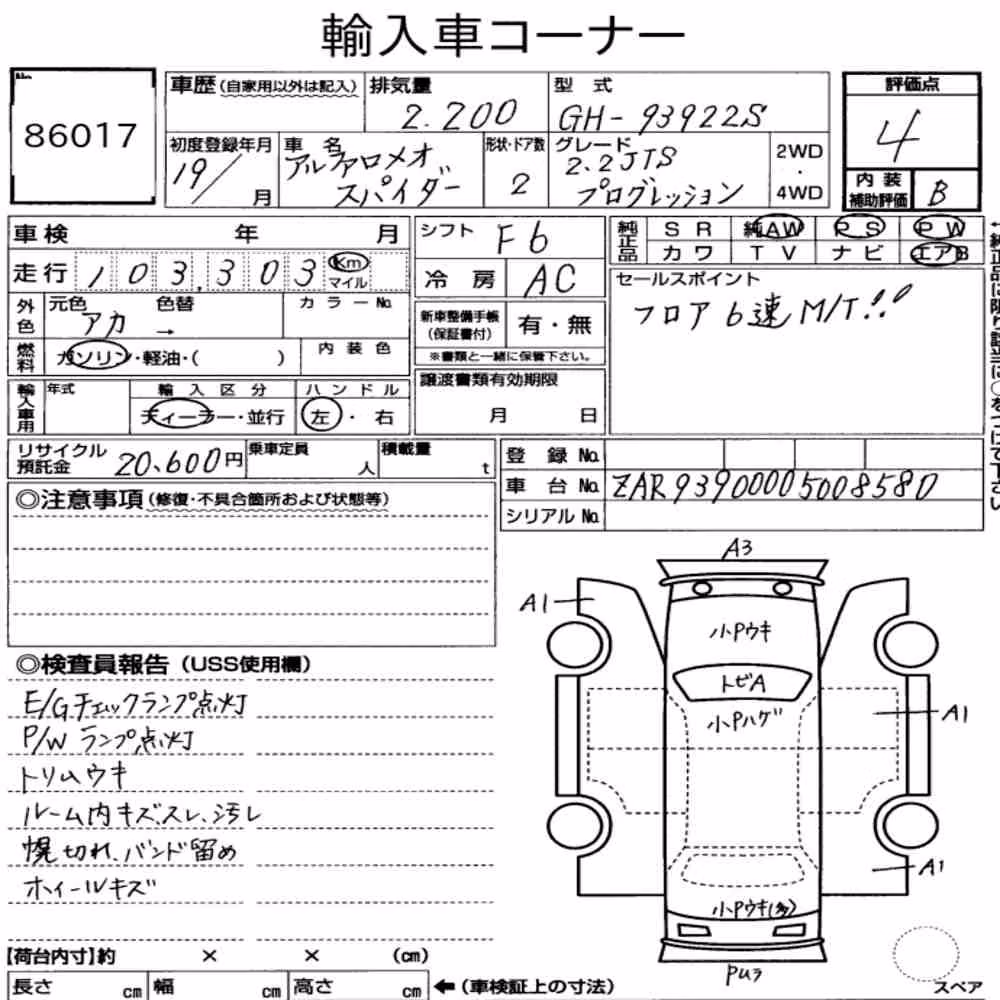 輸入車コーナー
No.
86017
車歴(自家用以外は記入)
排気量
2.200
型 式
GH-93922S
評価点
4
初度登録年月
19/
月
車 名
アルファロメオ
スパイダー
形状・ドア数
2
グレード
2.2JTS
プログレッション
2WD
・
4WD
内 装
補助評価
B
車検 年 月
走行 103,303 Km
マイル
外色
元色 アカ
色替 →
カラーNo.
燃料
ガソリン・軽油・( )
内装色
輸入車用
年式
輸入区分
ディーラー・並行
ハンドル
左・右
シフト F6
冷房 AC
新車整備手帳
(保証書付)
有・無
※書類と一緒に保管下さい。
譲渡書類有効期限
月 日
純正品
SR 純AW PS PW
カワ TV ナビ エアB
セールスポイント
フロア6速M/T!!
リサイクル
預託金
20,600円
乗車定員
人
積載量
t
登録No.
車台No. ZAR93900005008580
シリアルNo.
◎注意事項(修復・不具合箇所および状態等)
◎検査員報告(USS使用欄)
E/Gチェックランプ点灯
P/Wランプ点灯
トリムウキ
ルーム内キズ、スレ、汚レ
幌切れ、バンド留め
ホイールキズ
A3
A1
小Pウキ
トビA
小Pハゲ
A1
A1
小Pウキ(多)
PU3
スペア
【荷台内寸】約 × × (cm)
長さ cm 幅 cm 高さ cm
←(車検証上の寸法)